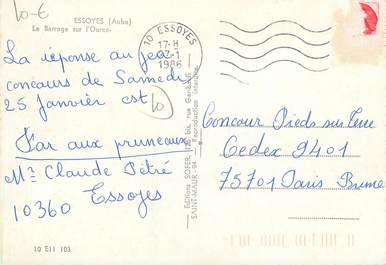 10 €
ESSOYES (Aube)
Le Barrage sur l'Ource
La réponse au jeu
concours de Samedi
25 janvier est
10
Far aux pruneaux
Me Claude Pétré
10360 Essoyes
10 E11 103
Editions SOFER, bis, rue Garibaldi
SAINT-MAUR-94 Reproduction Interdite
10 ESSOYES
17-H
1986
Concour Pieds sur Terre
Cedex 9401
75701 Paris Brune